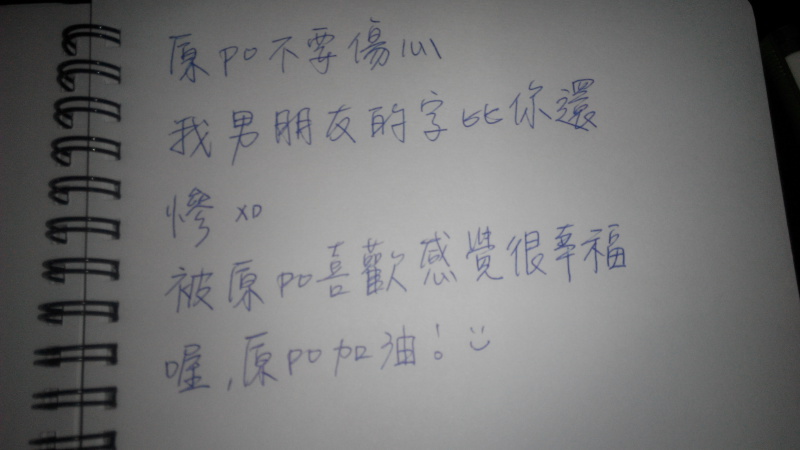 原po不要傷心
我男朋友的字比你還
慘 XD
被原po喜歡感覺很幸福
喔,原po加油!:)